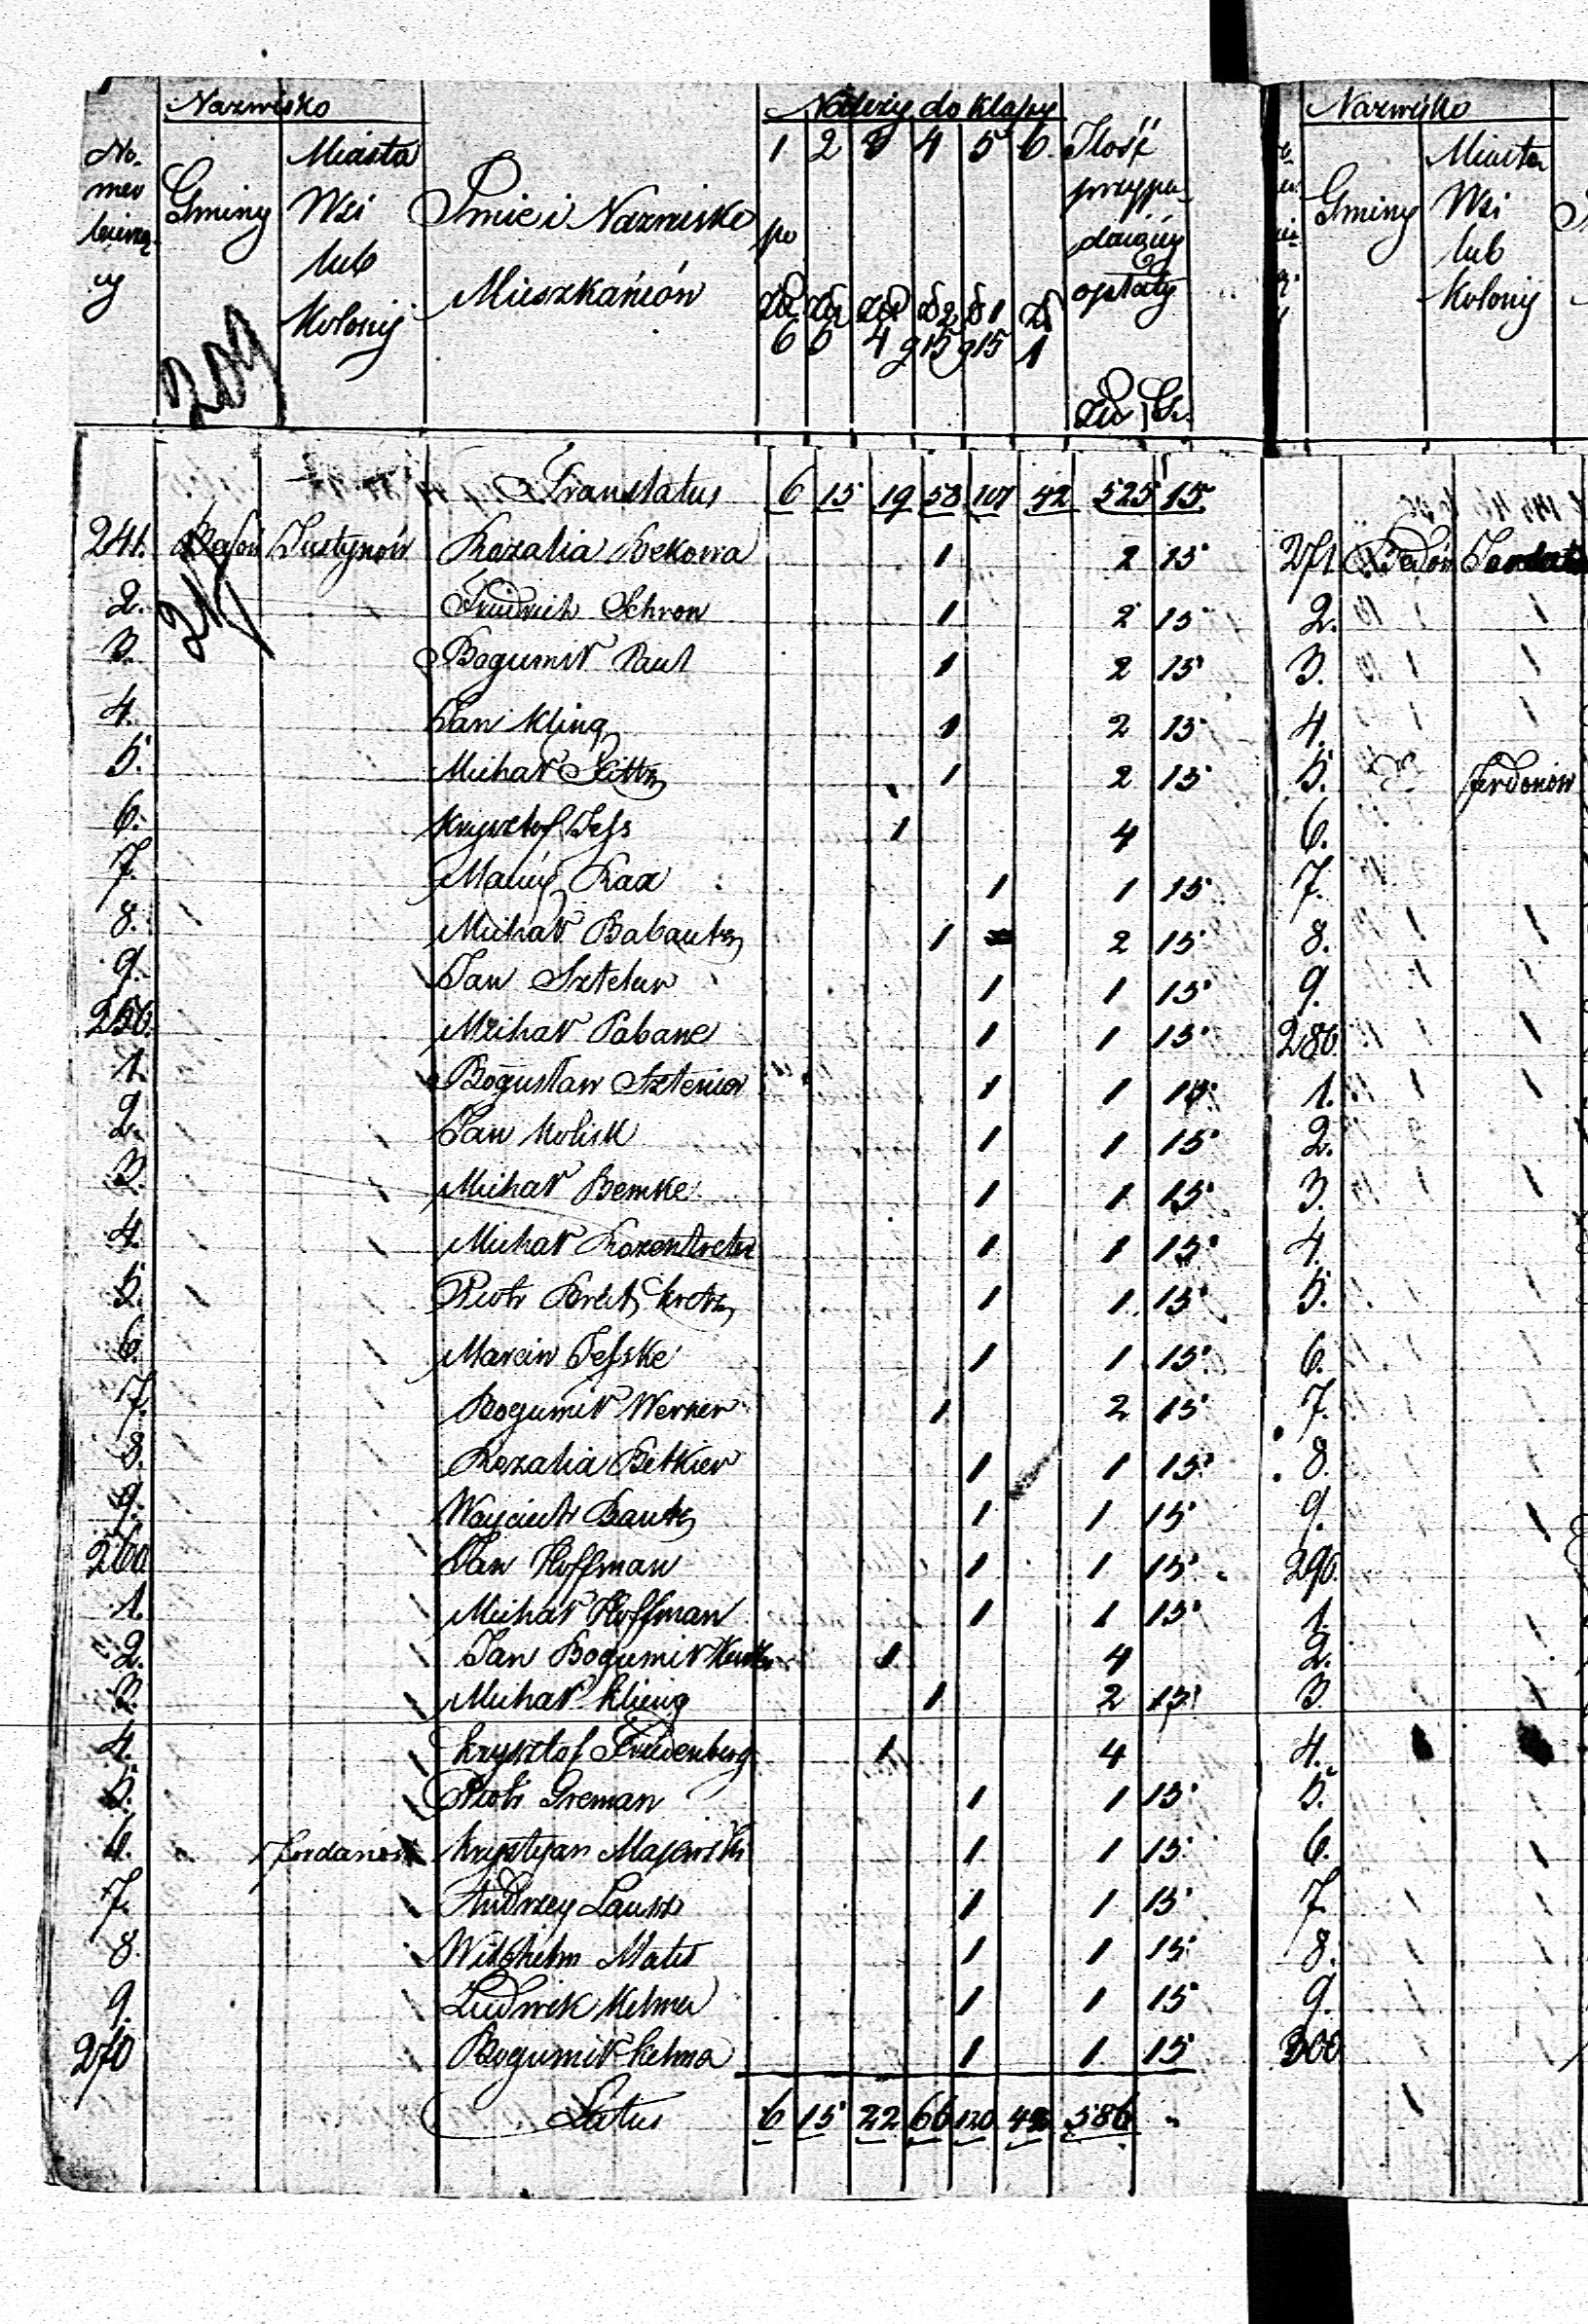 Nazwisko
Należy do klassy
No-
Miasta
1 2 3 4 5 6. Ilość
mer
Gminy
Wsi
Imie i Nazwisko
po
przypa-
bieżą-
lub
dającéy
cy
Kolonij
Mieszkańców
opłaty
6 6 4 g 15 g 15 1
209
Zł Gr.
Transtatus 6 15 19 58 101 42 525 15
241. Justynów Rozalia Bekowa 1 2 15
2. Fridrich Schron 1 2 15
3. Bogumił Paul 1 2 15
4. Jan Kling 1 2 15
5. Michał 1 2 15
6. Krysztof Jess 1 4
7. Rax 1 1 15
8. Michał 1 2 15
9. Jan 1 1 15
250. Michał Pabane 1 1 15
1. Bogusław 1 1
2. Jan Kolisk 1 1 15
3. Michał Bemke 1 1 15
4. Michał Rozentreter 1 1 15
5. Piotr 1 1 15
6. Marcin Jesske 1 1 15
7. Bogumił Werner 1 2 15
8. Rozalia Betkier 1 1 15
9. Wojciech Bautz 1 1 15
260 Jan Hoffman 1 1 15
1. Michał Hoffman 1 1 15
2. Jan Bogumił 1 4
3. Michał Kling 1 2 15
4. Krysztof Friedenberg 1 4
5. Piotr Greman 1 1 15
6. Jordanów Krystyan Majewski 1 1 15
7. Andrzey Lausz 1 1 15
8. Wilhelm 1 1 15
9. Ludwik 1 1 15
270 Bogumił Kelma 1 1 15
Latus 6 15 22 66 120 42 586 "
Nazwisko
Miasta
Gminy Wsi
lub
Kolonij
271. Bedoń
2.
3.
4.
5. Jordonów
6.
7.
8.
9.
280.
1.
2.
3.
4.
5.
6.
7.
8.
9.
290.
1.
2.
3.
4.
5.
6.
7.
8.
9.
300